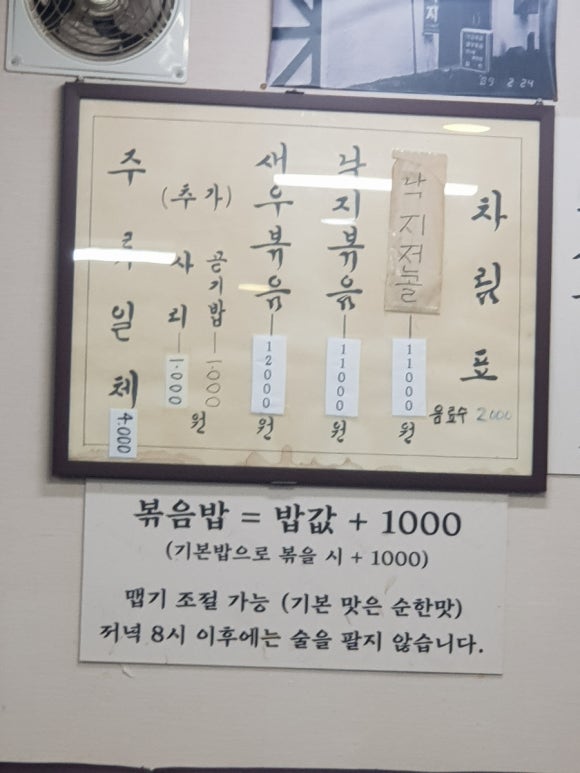 지
'89 2 24
차림표
낙지저놀
11000
원
음료수 2000
낙지볶음
11000
원
새우볶음
12000
원
(추가)
공기밥 1.000
사리 1.000
원
주류일체
4.000
볶음밥 = 밥값 + 1000
(기본밥으로 볶을 시 + 1000)
맵기 조절 가능 (기본 맛은 순한맛)
저녁 8시 이후에는 술을 팔지 않습니다.